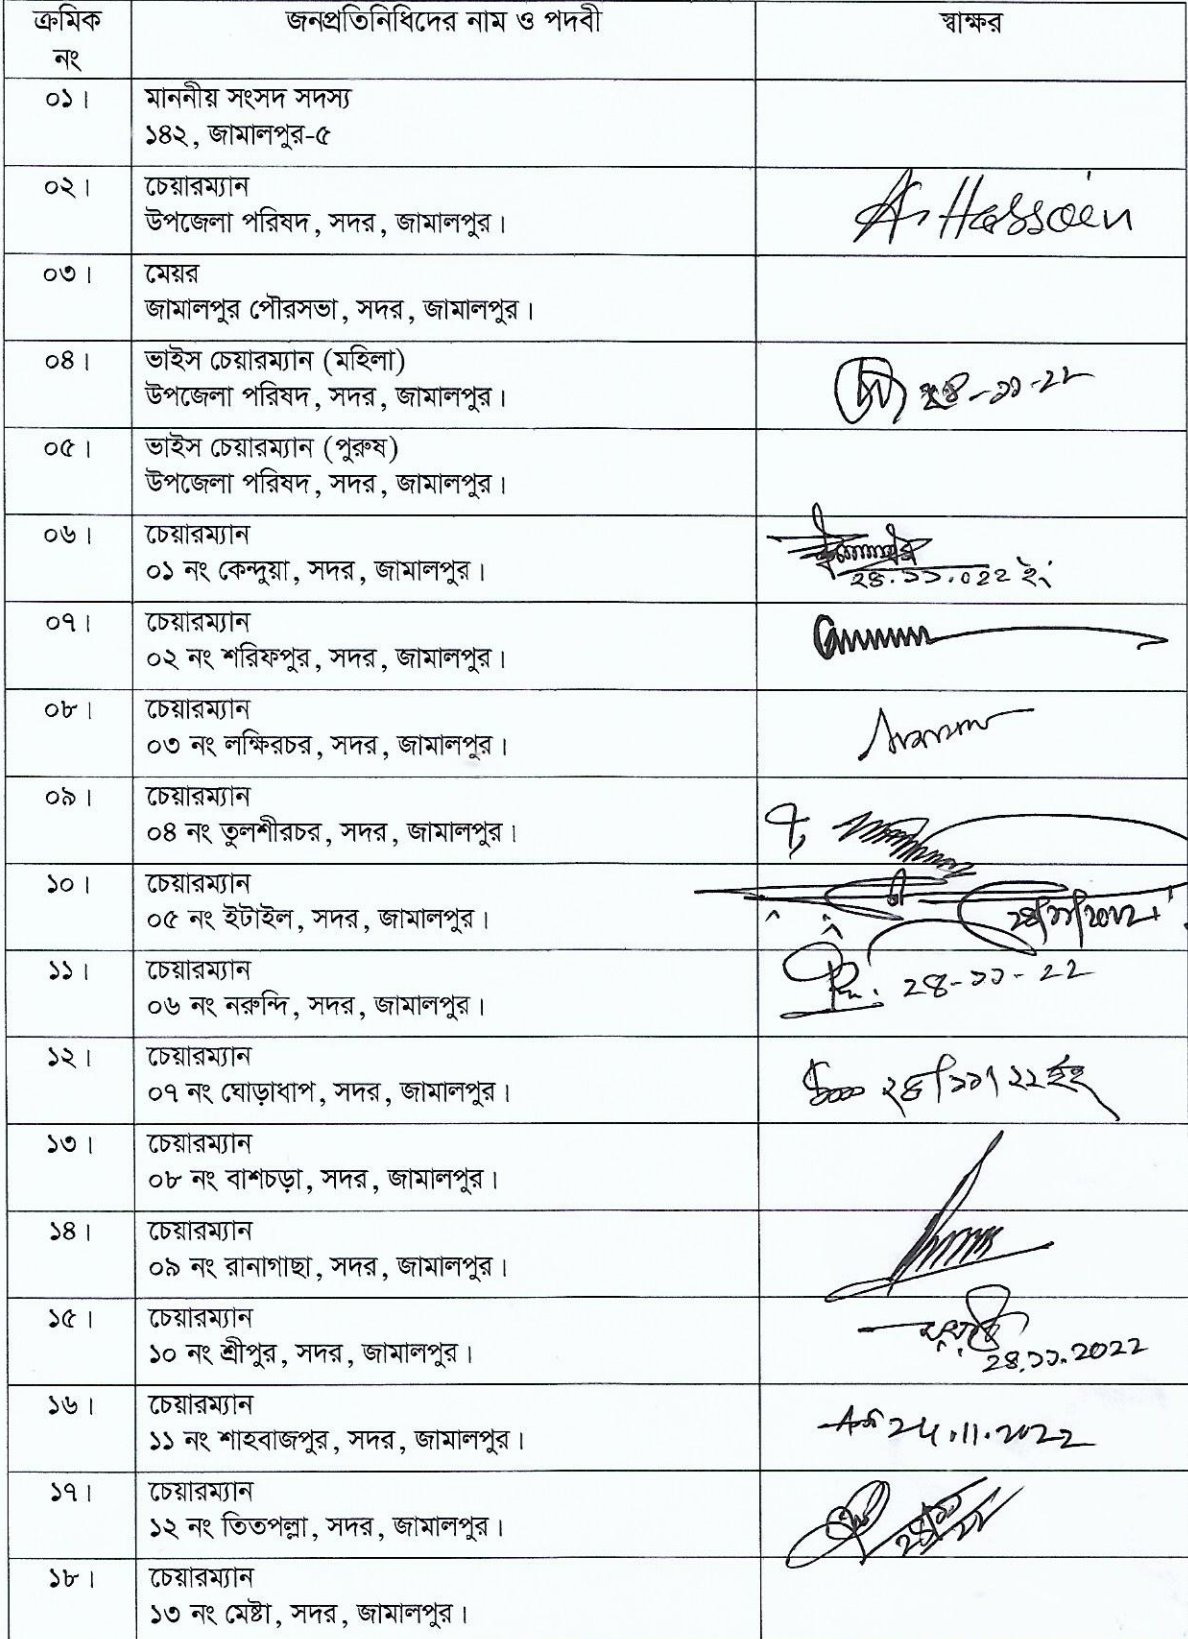 ক্রমিক নং জনপ্রতিনিধিদের নাম ও পদবী স্বাক্ষর
০১। মাননীয় সংসদ সদস্য
১৪২, জামালপুর-৫
০২। চেয়ারম্যান
উপজেলা পরিষদ, সদর, জামালপুর।
A. Hossain
০৩। মেয়র
জামালপুর পৌরসভা, সদর, জামালপুর।
০৪। ভাইস চেয়ারম্যান (মহিলা)
উপজেলা পরিষদ, সদর, জামালপুর।
২৪-১১-২২
০৫। ভাইস চেয়ারম্যান (পুরুষ)
উপজেলা পরিষদ, সদর, জামালপুর।
০৬। চেয়ারম্যান
০১ নং কেন্দুয়া, সদর, জামালপুর।
২৪.১১.০২২ ইং
০৭। চেয়ারম্যান
০২ নং শরিফপুর, সদর, জামালপুর।
০৮। চেয়ারম্যান
০৩ নং লক্ষিরচর, সদর, জামালপুর।
০৯। চেয়ারম্যান
০৪ নং তুলশীরচর, সদর, জামালপুর।
১০। চেয়ারম্যান
০৫ নং ইটাইল, সদর, জামালপুর।
১১। চেয়ারম্যান
০৬ নং নরুন্দি, সদর, জামালপুর।
২৪-১১-২২
১২। চেয়ারম্যান
০৭ নং ঘোড়াধাপ, সদর, জামালপুর।
২৪/১১/২২ ইং
১৩। চেয়ারম্যান
০৮ নং বাশচড়া, সদর, জামালপুর।
১৪। চেয়ারম্যান
০৯ নং রানাগাছা, সদর, জামালপুর।
১৫। চেয়ারম্যান
১০ নং শ্রীপুর, সদর, জামালপুর।
২৪.১১.২০২২
১৬। চেয়ারম্যান
১১ নং শাহবাজপুর, সদর, জামালপুর।
24.11.2022
১৭। চেয়ারম্যান
১২ নং তিতপল্লা, সদর, জামালপুর।
১৮। চেয়ারম্যান
১৩ নং মেষ্টা, সদর, জামালপুর।